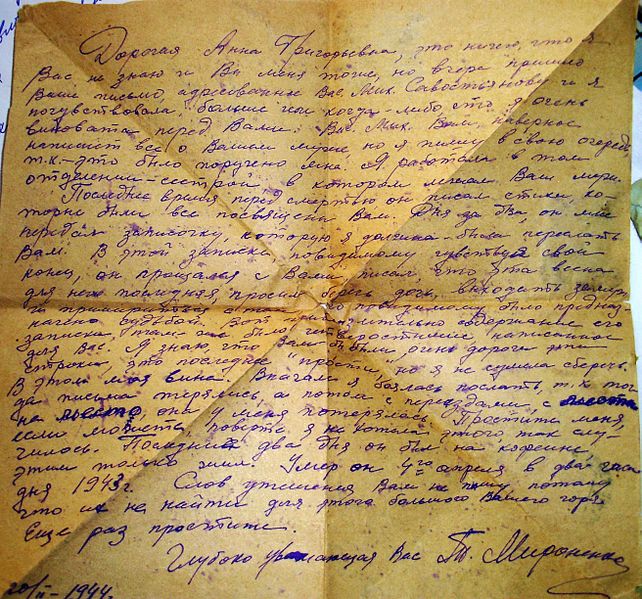 Дорогая Анна Григорьевна, это ничего, что я
Вас не знаю и Вы меня тоже, но вчера пришло
Ваше письмо, адресованное Вас. Мих. Савостьянову и я
почувствовала больше чем когда-либо что я очень
виновата перед Вами. Вас. Мих. Вам наверное
напишет все о Вашем муже но я пишу в свою очередь
т.к. это было поручено мне. Я работала в том
отделении сестрой в котором лежал Ваш муж.
Последнее время перед смертью он писал стихи, ко-
торые были все посвящены Вам. Дня за два, он мне
передал записочку, которую я должна была переслать
Вам. В этой записке, повидимому чувствуя свой
конец, он прощался с Вами писал, что эта весна
для него последняя, просил беречь дочь, выходить замуж,
было предназ-
начено судьбой. Вот приблизительно содержание его
записки, там же было четверостишие написанное
для Вас. Я знаю что Вам были очень дороги эти
строки, это последнее "прости", но я не сумела сберечь.
В этом моя вина. Вначале я боялась послать, т.к. тог-
да письма терялись, а потом с переездами с места
на место, она у меня потерялась. Простите меня,
если можете, поверьте, я не хотела этого, так слу-
чилось. Последние два дня он был на кофеине,
этим только жил. Умер он 4го апреля в два часа
дня 1943г. Слов утешения Вам не пишу потому
что их не найти для этого большого Вашего горя
Еще раз простите
Глубоко уважающая Вас Т. Мироненко
20/II-1944г.